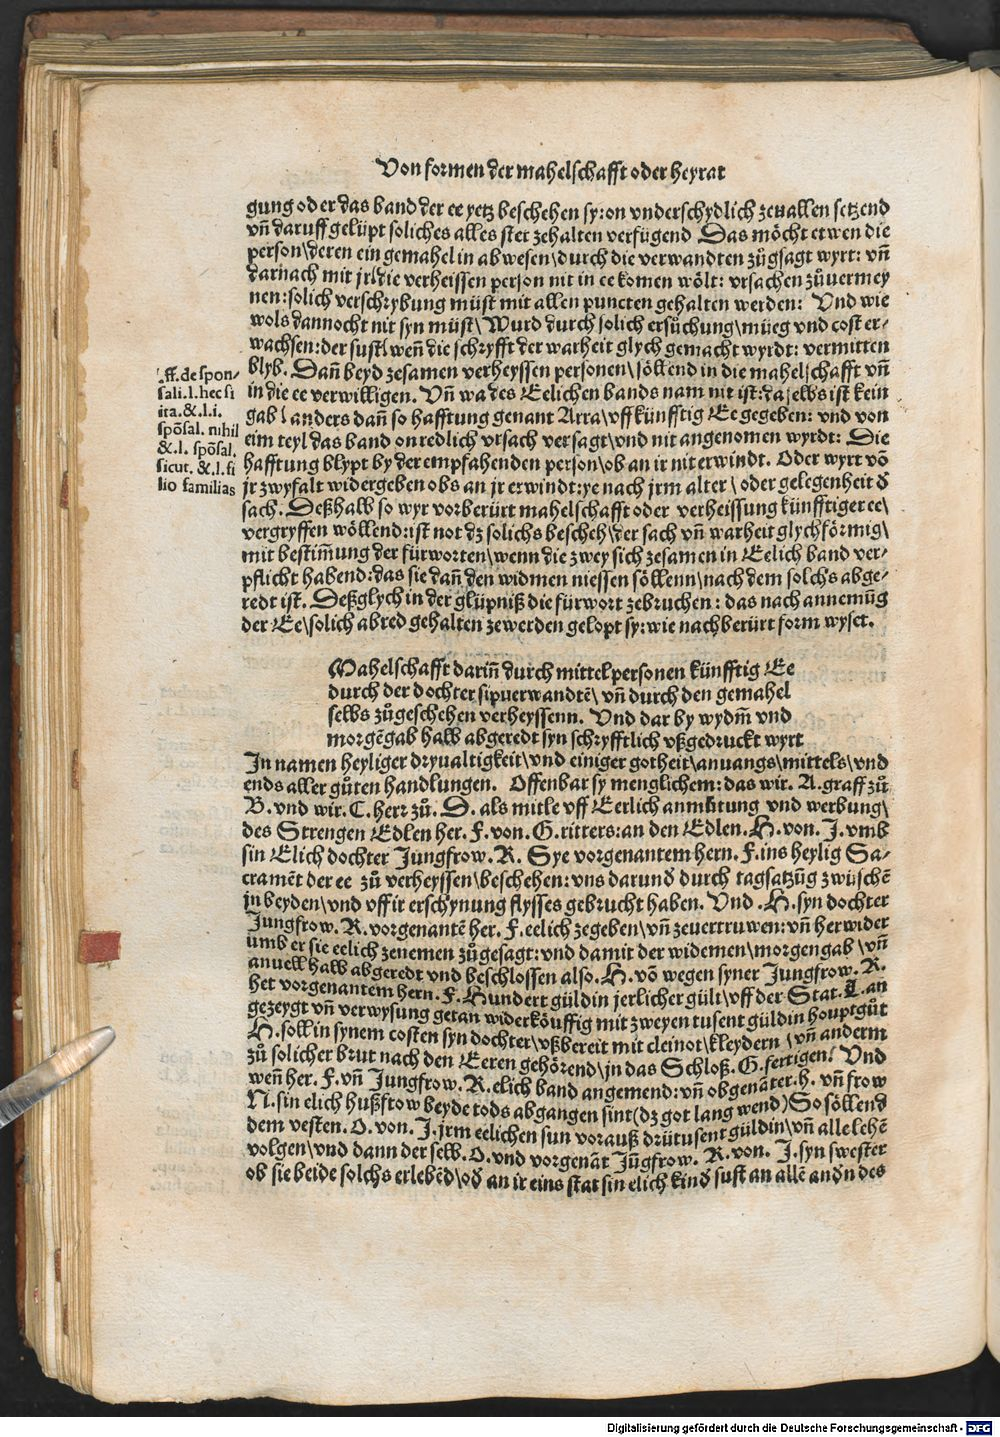 Von formen der mahelschafft oder heyrat
gung oder das band der ee yetz beschehen sy: on vnderschydlich zeuallen setzend
vn̄ daruff gelüpt soliches alles stet zehalten verfügend Das möcht etwen die
person\ deren ein gemahel in abwesen\ durch die verwandten zůgsagt wyrt: vn̄
darnach mit jr\ die verheissen person nit in ee komen wölt: vrsachen zůuermey
nen: solich verschrybung müst mit allen puncten gehalten werden: Vnd wie
wols dannocht nit syn müst\ Wurd durch solich ersůchung\ müeg vnd cost er-
wachsen: der sust\ wen̄ die schryfft der warheit glych gemacht wyrdt: vermitten
blyb. Dan̄ beyd zesamen verheyssen personen\ söllend in die mahelschafft vn̄
in die ee verwilligen. Vn̄ wa des Eelichen bands nam nit ist: da selbs ist kein
gab\ anders dan̄ so hafftung genant Arra\ vff künfftig Ee gegeben: vnd von
eim teyl das band on redlich vrsach versagt\ vnd nit angenomen wyrdt: Die
hafftung blypt by der empfahenden person\ ob an ir nit erwindt. Oder wyrt vō
jr zwyfalt widergeben obs an jr erwindt: ye nach jrm alter\ oder gelegenheit đ
sach. Deßhalb so wyr vorberürt mahelschafft oder verheissung künfftiger ee\
vergryffen wöllend: ist not dz solichs bescheh\ der sach vn̄ warheit glychförmig\
mit bestim̄ung der fürworten\ wenn die zwey sich zesamen in Eelich band ver-
pflicht habend: das sie dan̄ den widmen niessen söllenn\ nach dem solchs abge-
redt ist. Deßglych in der glüpniß die fürwort zebruchen: das nach annemūg
der Ee\ solich abred gehalten zewerden gelopt sy: wie nachberürt form wyset.
ff. de spon-
sali. l. hec si
ita. &. l. i.
spōsal. nihil
&. l. spōsal.
sicut. &. l. fi
lio familias
Mahelschafft darin̄ durch mittel personen künfftig Ee
durch der dochter sipuerwandtē\ vn̄ durch den gemahel
selbs zůgeschehen verheyssenn. Vnd dar by wydm̄ vnd
morgēgab halb abgeredt syn schryfftlich vßgedruckt wyrt
In namen heyliger dryualtigkeit\ vnd einiger gotheit\ anuangs\ mittels\ vnd
ends aller gůten handlungen. Offenbar sy menglichem: das wir. A. graff zů
B. vnd wir. C. herr zů. D. als mitle vff Eerlich anmůtung vnd werbung\
des Strengen Edlen her. F. von. G. ritters: an den Edlen. H. von. J. vmb
sin Elich dochter Jungfrow. R. Sye vorgenantem hern. F. ins heylig Sa-
cramēt der ee zů verheyssen\ beschehen: vns darunđ durch tagsatzūg zwüschē
jn beyden\ vnd vff ir erschynung flysses gebrucht haben. Vnd. H. syn dochter
Jungfrow. R. vorgenantē her. F. eelich zegeben\ vn̄ zeuertruwen: vn̄ herwider
umb er sie eelich zenemen zůgesagt: vnd damit der widemen\ morgengab\ vn̄
anuell halb abgeredt vnd beschlossen also. H. vō wegen syner Jungfrow. R.
het vorgenantem hern. F. Hundert güldin jerlicher gült\ vff der Stat. T. an
gezeygt vn̄ verwysung getan widerköuffig mit zweyen tusent güldin houptgůt
H. soll in synem costen syn dochter\ vßbereit mit cleinot\ kleydern\ vn̄ anderm
zů solicher brut nach den Eeren gehörend\ jn das Schloß. G. fertigen. Vnd
wen̄ her. F. vn̄ Jungfrow. R. elich band angemend: vn̄ obgenāter. h. vn̄ frow
N. sin elich hußfrow beyde tods abgangen sint (dz got lang wend) So söllend
dem vesten. O. von. J. jrm eelichen sun vorauß drütusent güldin\ vn̄ alle lehē
volgen\ vnd dann der selb. O. vnd vorgenāt Jūgfrow. R. von. J. syn swester
ob sie beide solchs erlebēd\ ođ an ir eins stat sin elich kinđ sust an allē andn des
Digitalisierung gefördert durch die Deutsche Forschungsgemeinschaft - DFG